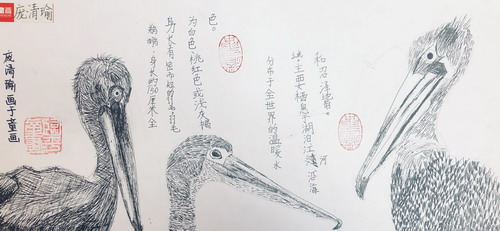 庞清瑜
庞清瑜画于童画
鹈鹕:身长约150厘米.全
身长有密而短的羽毛
为白色、桃红色或浅灰褐
色。
分布于全世界的温暖水
域.主要栖息于湖泊江河沿海
和沼泽地带。